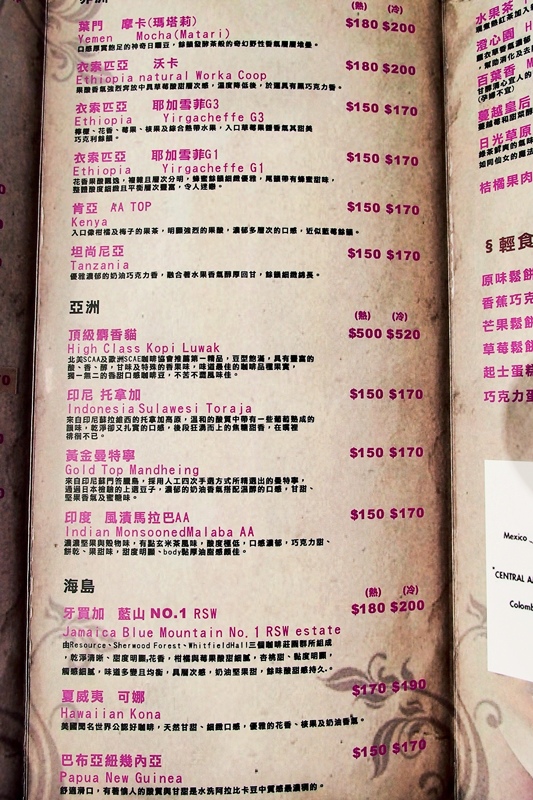 (熱) (冷)
葉門 摩卡(瑪塔莉) $180 $200
Yemen Mocha(Matari)
衣索匹亞 沃卡 $180 $200
Ethiopia natural Worka Coop
衣索匹亞 耶加雪菲G3 $150 $170
Ethiopia Yirgacheffe G3
檸檬、花香、莓果、核果及綜合熱帶水果,入口草莓果醬香氣其甜美
巧克利餘韻。
衣索匹亞 耶加雪菲G1 $150 $170
Ethiopia Yirgacheffe G1
肯亞 AA TOP $150 $170
Kenya
入口像柑橘及梅子的果茶,明顯強烈的果酸,濃郁多層次的口感,近似藍莓餘韻。
坦尚尼亞 $150 $170
Tanzania
優雅濃郁的奶油巧克力香,融合著水果香氣醇厚回甘,餘韻細緻綿長。
亞洲
(熱) (冷)
頂級麝香貓 $500 $520
High Class Kopi Luwak
北美SCAA及歐洲SCAE咖啡協會推薦第一精品,豆型飽滿,具有豐富的
酸、香、醇,甘味及特殊的香果味,味道最佳的咖啡品種果實,
獨一無二的香甜口感咖啡豆,不苦不澀風味佳。
印尼 托拿加 $150 $170
Indonesia Sulawesi Toraja
來自印尼蘇拉維西的托拿加高原,溫和的酸質中帶有一些葡萄熟成的
韻味,乾淨卻又扎實的口感,後段狂湧而上的焦糖甜香,在嘴裡
徘徊不已。
黃金曼特寧 $150 $170
Gold Top Mandheing
來自印尼蘇門答臘島,採用人工四次手選方式所精選出的曼特寧,
通過日本檢驗的上選豆子,濃郁的奶油香氣搭配濕醇的口感,甘甜、
堅果香氣及蜜糖味。
印度 風漬馬拉巴AA $150 $170
Indian MonsoonedMalaba AA
濃濃堅果與穀物味,有點玄米茶風味,酸度極低,口感濃郁,巧克力甜、
餅乾、果甜味,甜度明顯、body黏厚油脂感頗佳。
海島
(熱) (冷)
牙買加 藍山 NO.1 RSW $180 $200
Jamaica Blue Mountain No.1 RSW estate
由Resource、Sherwood Forest、WhitfieldHall三個咖啡莊園群所組成
,乾淨清晰、甜度明顯,花香,柑橘與莓果酸甜細膩,杏桃甜、黏度明顯,
觸感細膩,味道多變且均衡,具層次感,奶油堅果甜,餘味酸甜感持久。
夏威夷 可娜 $170 $190
Hawaiian Kona
美國聞名世界公認好咖啡,天然甘甜、細緻口感,優雅的花香、核果及奶油香蕉。
巴布亞紐幾內亞 $150 $170
Papua New Guinea
舒適滑口,有著愉人的酸質與甘甜是水洗阿拉比卡豆中質感最濃稠的。
水果茶
澄心園
百葉香
(孕婦不宜)
蔓越皇后
日光草原
如同仙女的魔法
桔橘果肉
§ 輕食
原味鬆餅
香蕉巧克
芒果鬆餅
草莓鬆餅
起士蛋糕
巧克力蛋
Mexico
"CENTRAL A
Colomb